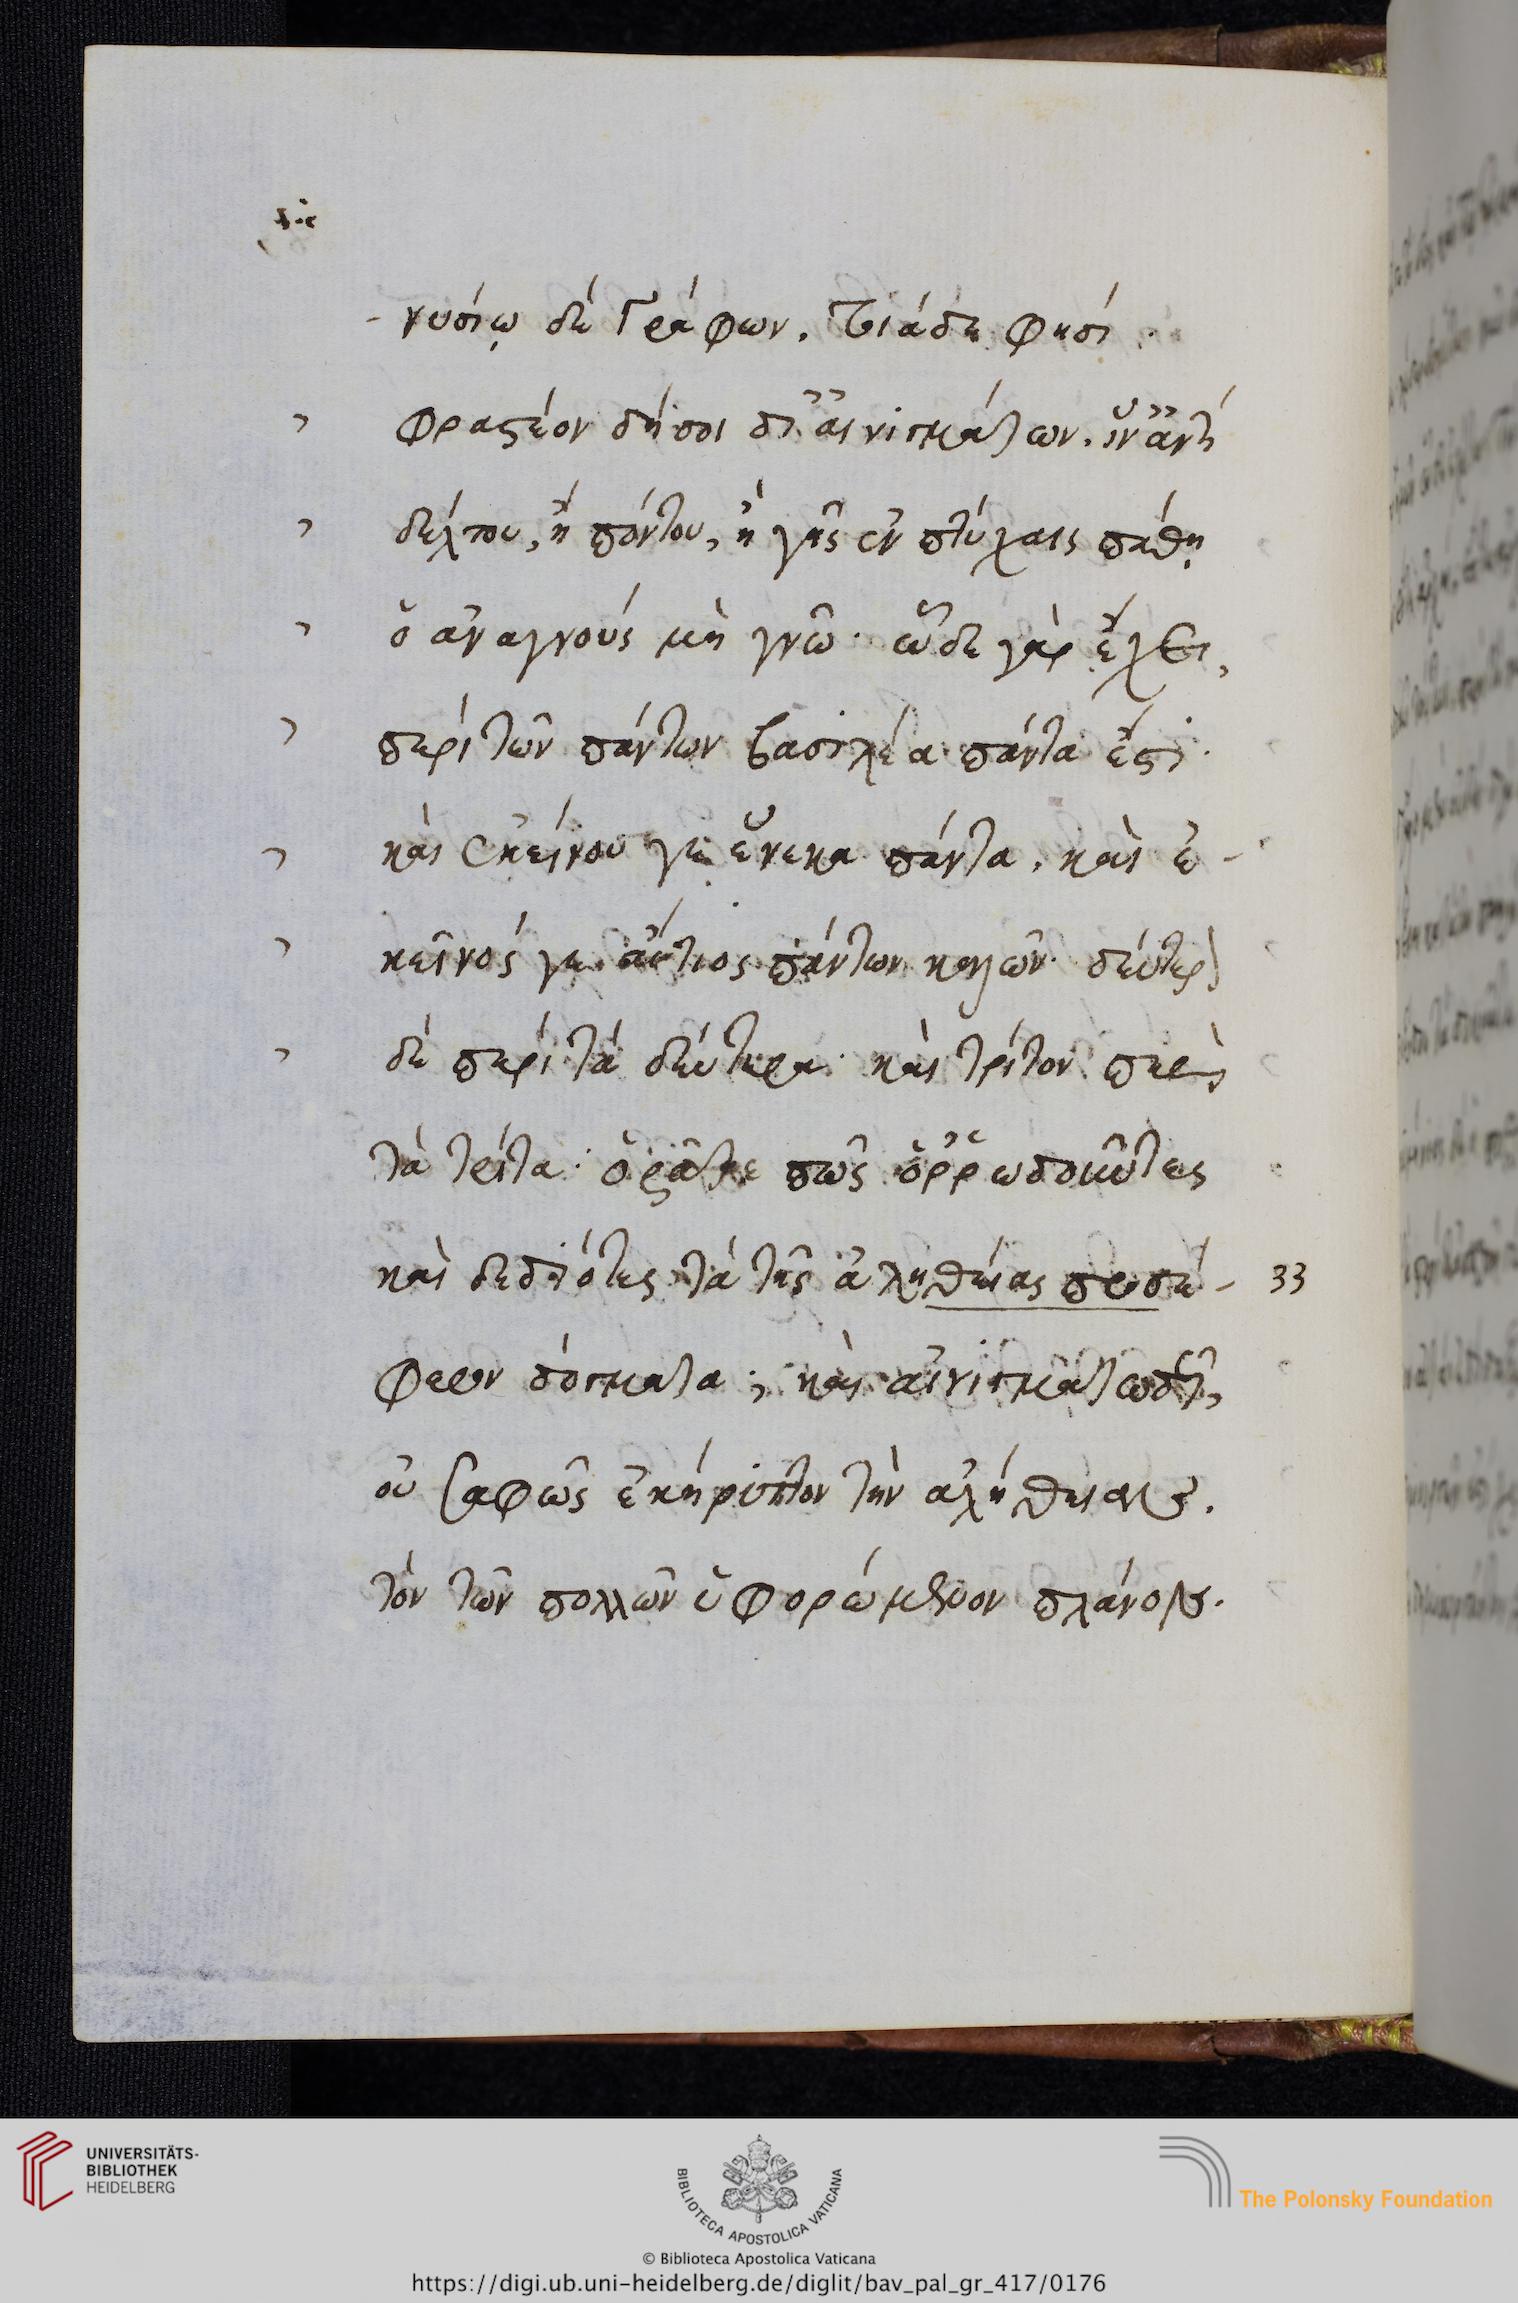 νυσίῳ δέ γράφων. τοιάδε φησί.
φραστέον δή σοι δι' αἰνιγμάτων. ἵν' ἄν τι
δέλτου, ἢ πόντου, ἢ γῆς ἐν πτύχαις πάθῃ
ὁ ἀναγνούς μὴ γνῶ· ὧδε γὰρ ἔχει,
περί τῶν πάντων βασιλέα πάντα ἐστί·
καὶ ἐκείνου γε ἕνεκα πάντα. καὶ ἐ-
κεῖνός γε αἴτιος πάντων καλῶν· δεύτερον
δέ περί τά δεύτερα· καὶ τρίτον περὶ
τὰ τρίτα· ὁρᾶτε πῶς ὀρρωδοῦντες
καὶ δεδιότες τά τῆς ἀληθείας προσέ- 33
φερον δόγματα; καὶ αἰνιγματωδῶς,
οὐ σαφῶς ἐκήρυττον τὴν ἀλήθειαν.
τὸν τῶν πολλῶν ὑφορώμενον πλάνον.
UNIVERSITÄTS-
BIBLIOTHEK
HEIDELBERG
BIBLIOTECA APOSTOLICA VATICANA
The Polonsky Foundation
© Biblioteca Apostolica Vaticana
https://digi.ub.uni-heidelberg.de/diglit/bav_pal_gr_417/0176